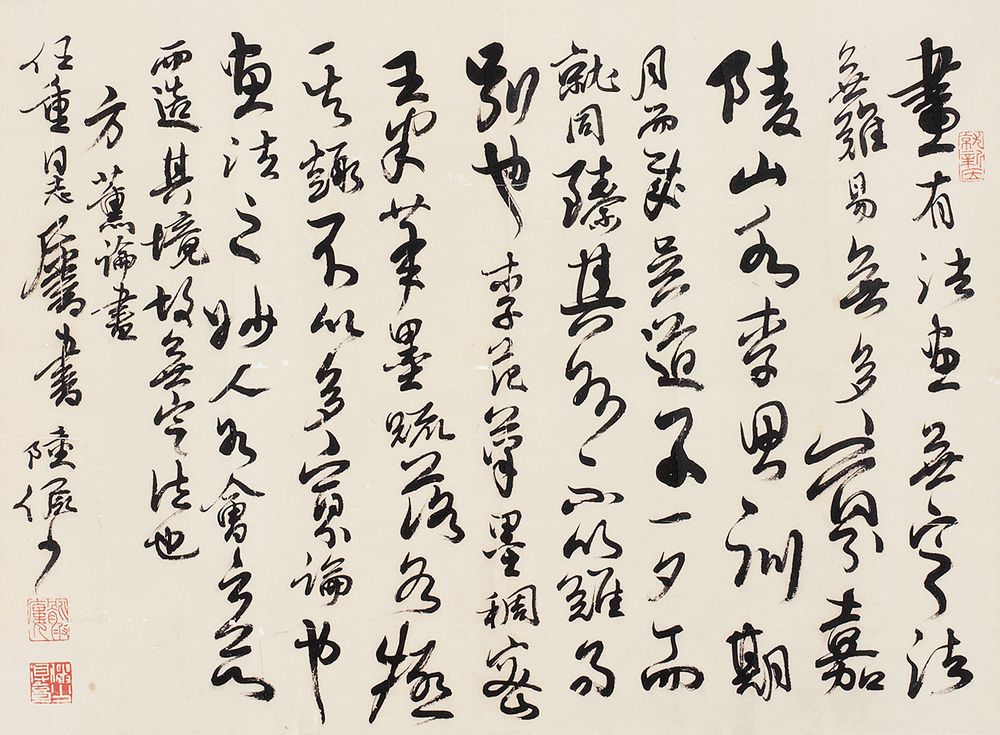 畫有法畫無定法
無難易無多寡嘉
陵山水李思訓期
月而成吳道子一夕而
就同臻其妙不以難易
別也李范筆墨稠密
王米筆墨疏落各極
其趣不以多寡論也
畫法之妙人各會意
而造其境故無定法也
方薰論畫
任重同志屬書 陸儼少